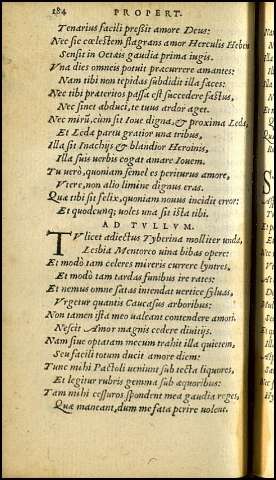 184 PROPERT.
Tenarius facili pressit amore Deus:
Nec sic cœlestem flagrans amor Herculis Heben
Sensit in Oetæis gaudia prima iugis.
Vna dies omneis potuit præcurrere amantes:
Nam tibi non tepidas subdidit illa faces:
Nec tibi præteritos passa est succedere fastus,
Nec sinet abduci, te tuus ardor aget.
Nec mirū, cùm sit Ioue digna, & proxima Ledæ,
Et Leda partu gratior una tribus,
Illa sit Inachijs & blandior Heroinis,
Illa suis uerbis cogat amare Iouem.
Tu uerò, quoniam semel es periturus amore,
Vtere, non alio limine dignus eras.
Quæ tibi sit felix, quoniam nouus incidit error:
Et quodcunq; uoles una sit ista tibi.
AD TVLLVM.
TV licet abiectus Tyberina molliter unda,
Lesbia Mentoreo uina bibas opere:
Et modò tam celeres mireris currere lyntres,
Et modò tam tardas funibus ire rates:
Et nemus omne satas intendat vertice syluas,
Vrgetur quantis Caucasus arboribus:
Non tamen ista meo ualeant contendere amori.
Nescit Amor magnis cedere diuitijs.
Nam siue optatam mecum trahit illa quietem,
Seu facili totum ducit amore diem:
Tunc mihi Pactoli ueniunt sub tecta liquores,
Et legitur rubris gemma sub æquoribus:
Tam mihi cessuros spondent mea gaudia reges,
Quæ maneant, dum me fata perire uolent.